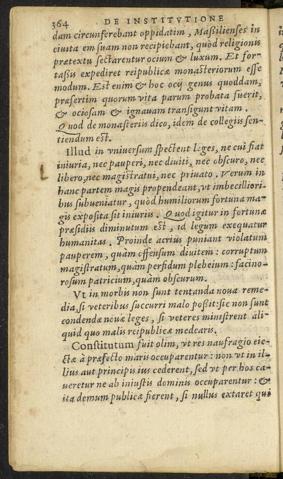 364 DE INSTITVTIONE
dam circunferebant oppidatim, Maßilienses in
ciuitatem suam non recipiebant, quòd religionis
prætextu sectarentur ocium & luxum. Et for-
taßis expediret reipublicæ monasteriorum esse
modum. Est enim & hoc ocij genus quoddam,
præsertim quorum vita parum probata fuerit,
& ociosam & ignauam transigunt vitam.
Quod de monasterijs dico, idem de collegijs sen-
tiendum est.
Illud in vniuersum spectent leges, ne cui fiat
iniuria, nec pauperi, nec diuiti, nec obscuro, nec
libero, nec magistratui, nec priuato. Verum in
hanc partem magis propendeant, vt imbecilliori-
bus subueniatur, quòd humiliorum fortuna ma-
gis exposita sit iniurijs. Quod igitur in fortuna
præsidijs diminutum est, id legum exequatur
humanitas. Proinde acrius puniant violatum
pauperem, quàm offensum diuitem: corruptum
magistratum, quàm perfidum plebeium: facino-
rosum patricium, quàm obscurum.
Vt in morbis non sunt tentanda noua reme-
dia, si veteribus succurri malo poßit: sic non sunt
condendæ nouæ leges, si veteres ministrent ali-
quid quo malis reipublicæ medearis.
Constitutum fuit olim, vt res naufragio eie-
ctæ à præfecto maris occuparentur: non vt in il-
lius aut principis ius cederent, sed vt per hos ca-
ueretur ne ab iniustis dominis occuparentur: &
ita demum publicæ fierent, si nullus extaret qui